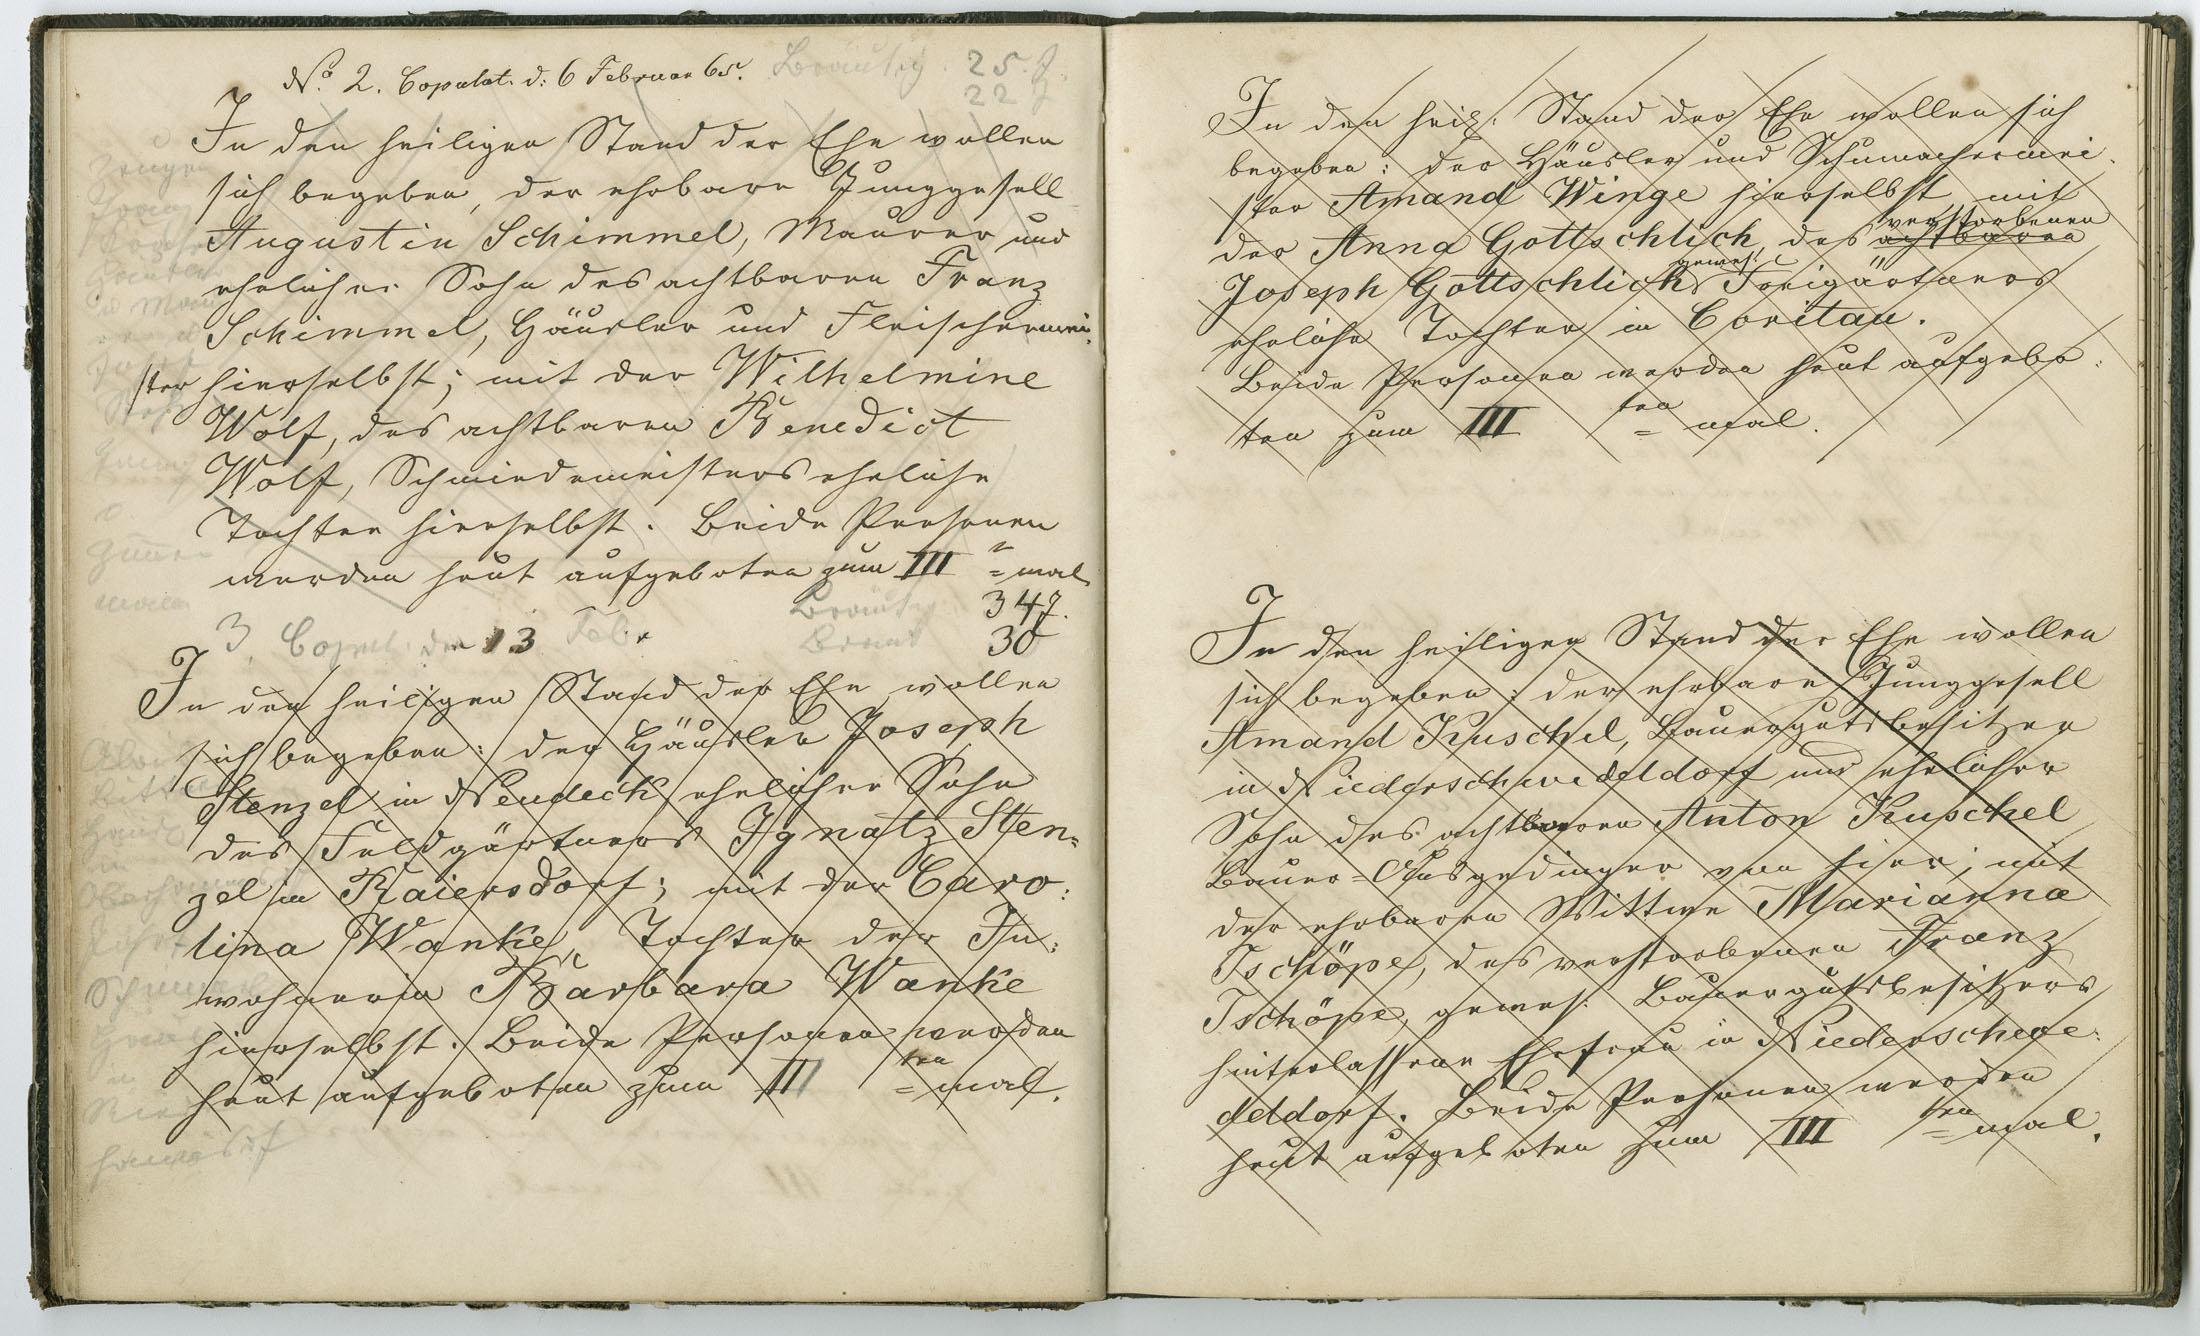 No. 2. Copulat. d: 6 Februar 65. Bräutig. 25. J.
22 J
In den heiligen Stand der Ehe wollen
sich begeben, der ehrbare Junggesell
Augustin Schimmel, Maurer und
ehelicher Sohn des achtbaren Franz
Schimmel, Häusler und Fleischermei-
ster hierselbst; mit der Wilhelmine
Wolf, des achtbaren Benedict
Wolf, Schmiedemeisters eheliche
Tochter hierselbst. Beide Personen
werden heut aufgeboten zum III = mal
Bräutig. 34 J.
3. Copul. den 13 Febr Braut 30
In den heiligen Stand der Ehe wollen
sich begeben: der Häusler Joseph
Stenzel in Neudeck ehelicher Sohn
des Feldgärtners Ignatz Sten=
zel in Raiersdorf; mit der Caro:
lina Wanke, Tochter der In:
wohnerin Barbara Wanke
hierselbst. Beide Personen werden
heut aufgeboten zum III ten = mal.
Zeugen
In den heil. Stand der Ehe wollen sich
begeben: der Häusler und Schumachermei-
ster Amand Winge hierselbst mit
der Anna Gottschlich, des achtbaren verstorbenen
Joseph Gottschlich gewes. Freigärtners
eheliche Tochter in Coritau.
Beide Personen werden heut aufgebo:
ten zum III ten = mal.
In den heiligen Stand der Ehe wollen
sich begeben: der ehrbare Junggesell
Amand Kuschel, Bauergutsbesitzer
in Niederschwedeldorf und ehelicher
Sohn des achtbaren Anton Kuschel
Bauer=Ausgedinger von hier; mit
der ehrbaren Wittwe Marianna
Tschöpe, des verstorbenen Franz
Tschöpe, gewes: Bauergutsbesitzers
hinterlassene Ehefrau in Niederschwe:
deldorf. Beide Personen werden
heut aufgeboten zum III ten = mal.